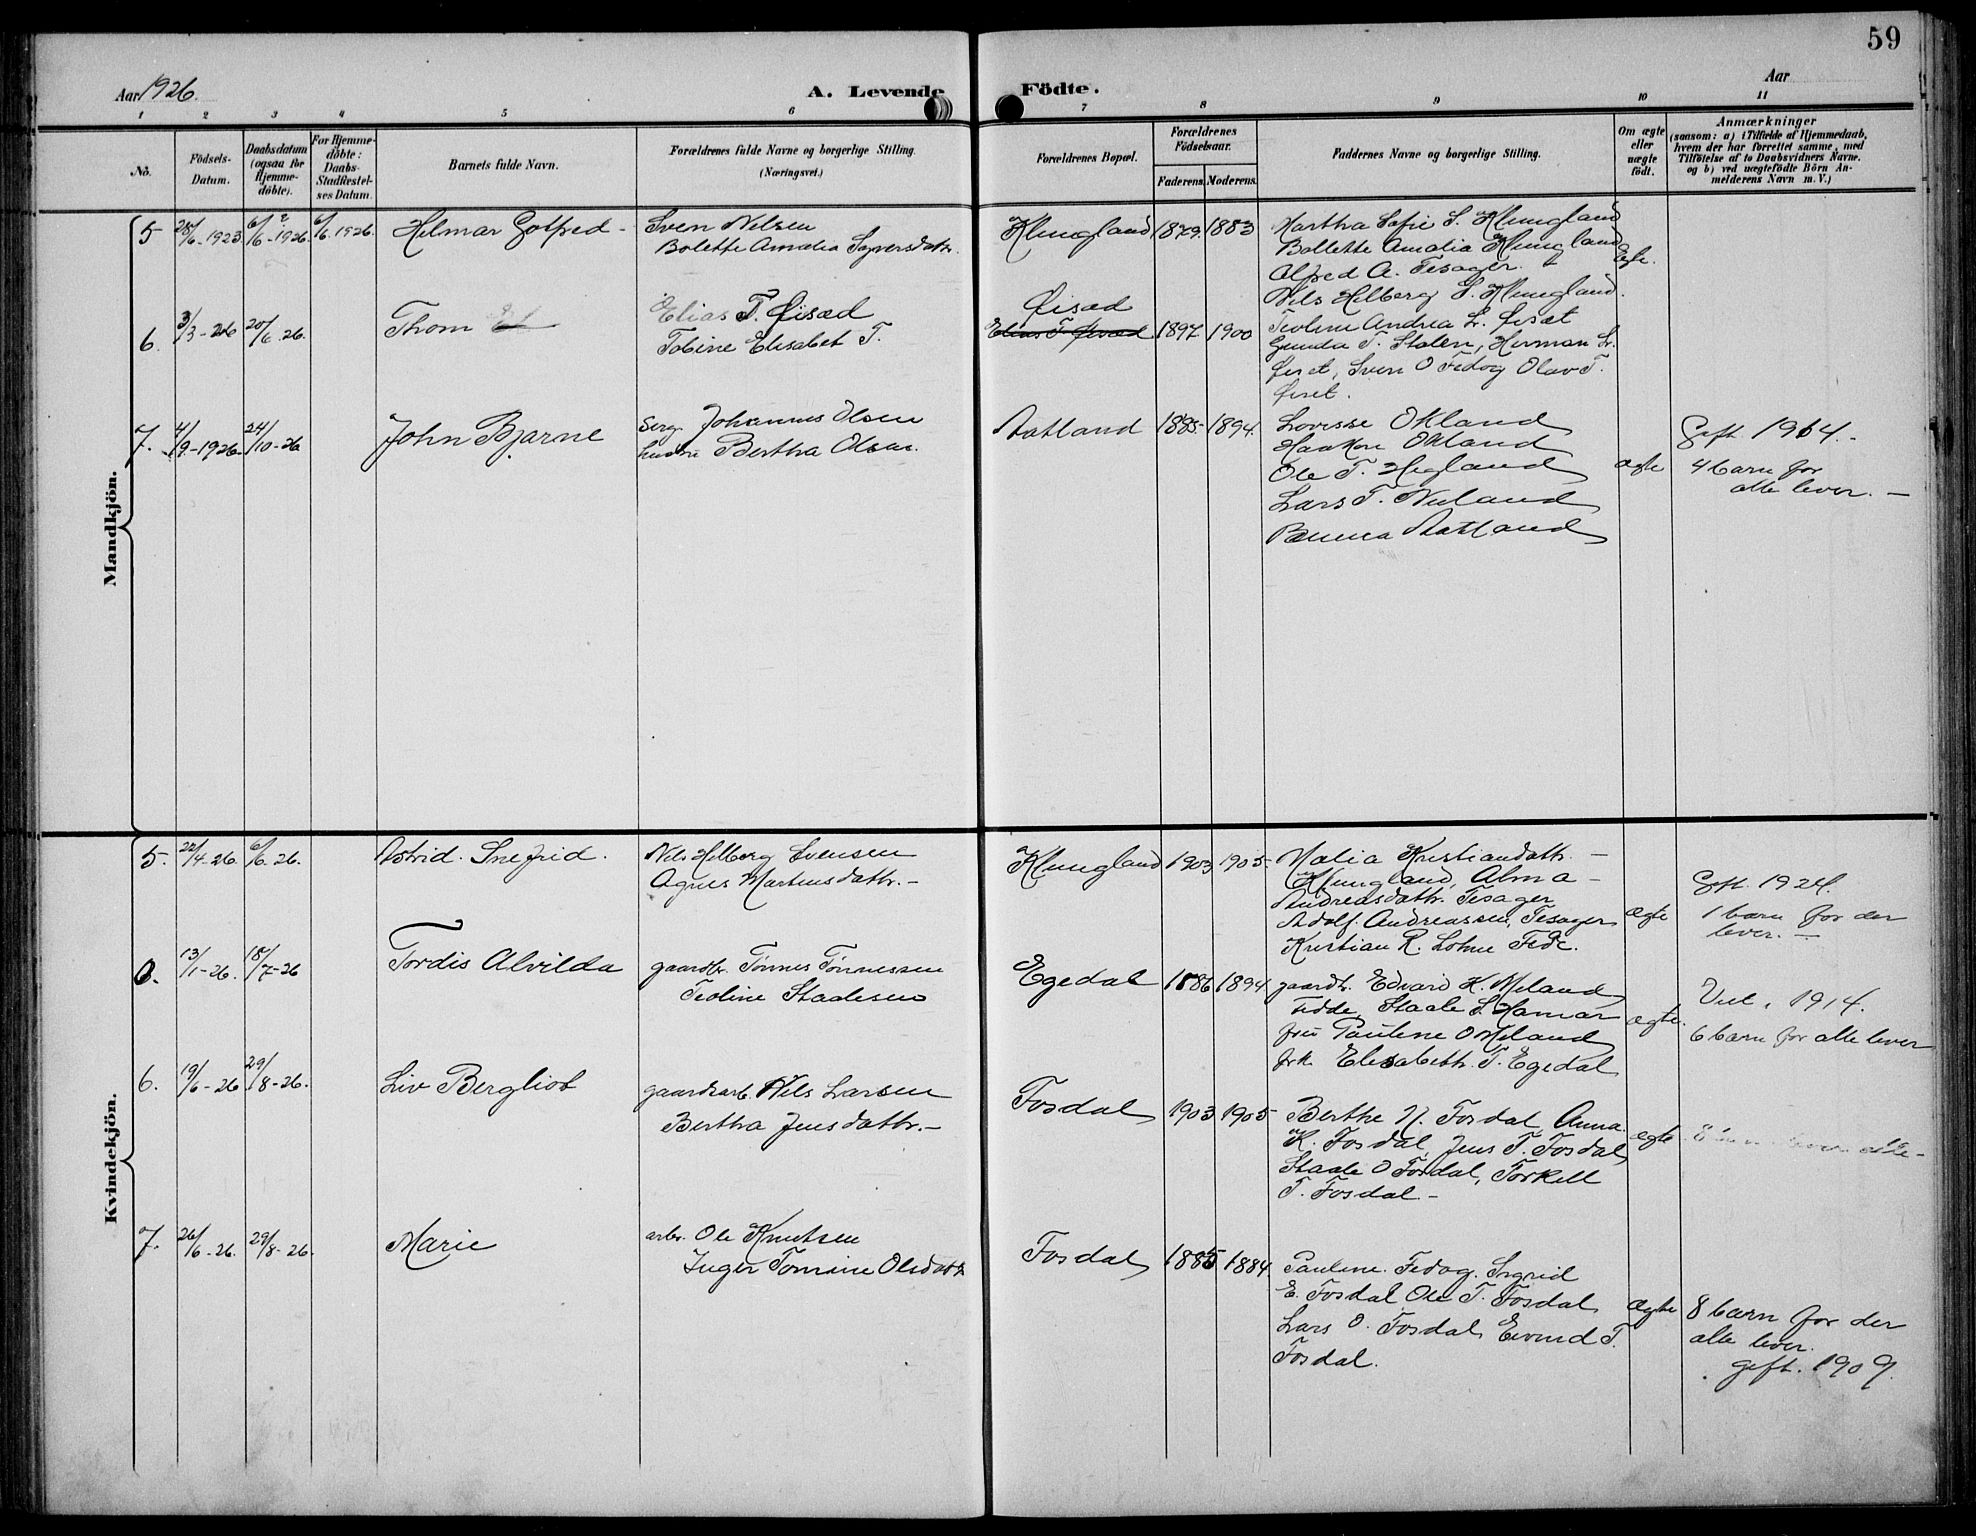 59
Aar 1926.
A. Levende Födte.
Aar
1 2 3 4 5 6 7 8 9 10 11
No.
Födsels-
Datum.
Daabsdatum
(ogsaa for
Hjemme-
döbte).
For Hjemme-
döbte:
Daabs-
Stadfestel-
ses Datum.
Barnets fulde Navn.
Forældrenes fulde Navne og borgerlige Stilling.
(Næringsvei.)
Forældrenes Bopæl.
Forældrenes
Födselsaar.
Faderens. Moderens.
Faddernes Navne og borgerlige Stilling.
Om ægte
eller
uægte
födt.
Anmærkninger
(saasom: a) i Tilfælde af Hjemmedaab,
hvem der har forrettet samme, med
Tilföielse af to Daabsvidners Navne.
og b) ved uægtefödte Börn An-
melderens Navn m. V.)
Mandkjön.
5 28/6-1923. 6/6-1926. 6/6.1926. Helmar Gotfred - Sven Nilsen
Bolette Amalia Syversdatr.
Klungland 1879. 1883 Martha Sofie S. Klungland
Bollette Amalia Klungland
Alfred A. Tesager.
Nils Helberg S. Klungland.
Ægte.
6. 3/3-26 20/6.26. Thom Elias T. Øisæd
Tobine Elisabet T.
Øisæd
Elias T Øisæd 1897 1900 Teoline Andrea L. Øisæt
Gunda T. Stølen, Herman L.
Øiset, Sven O Fedog Olav T.
Øiset.
7. 4/9-1926 24/10-26 John Bjarne Serg. Johannes Olsen
hustru Bertha Olsen.
Aatland 1885- 1894. Lovisse Okland
Haakon Okland
Ole T. Hegland
Lars T. Nuland
Aatland
ægte Gift 1914.-
4 barn før
alle lever. -
Kvindekjön.
5. 22/4-26. 6/6.26. Astrid. Snefrid. Nils Helberg Svensen
Agnes Martinsdatr. -
Klungland 1903 1905- Malia Kristiandatr. -
Klungland, Alma -
Andreasdatr. Tesager
Adolf. Andreassen, Tesager
Kristian R. Lohne Fede.
Ægte Gift. 1924.
1 barn før der
lever. -
6. 13/1-26. 18/7-26 Tordis Alvilda gaardbr. Tønnes Tønnessen
Teoline Staalesen
Egedal 1886 1894. gaardbr. Edvard H. Meland
Fedde, Staale S. Hamar
fru Paulene O Meland
frk Elisabeth. T. Egedal
ægte. Viet, 1914.
6 barn før alle lever
6. 19/6-26 29/8-26. Liv Bergliot gaardsarb. Nils Larsen
Bertha Jensdatr. -
Fosdal 1903 1905 Berthe N. Fosdal, Anna
K. Fosdal, Jens T. Fosdal,
Staale O Fosdal, Torkell
T. Fosdal. -
Ægte lever alle-
7. 26/6-26. 29/8-26. Marie arbr. Ole Knutsen
Inger Tomine Olsdatr
Fosdal 1885 1884. Paulene. Fedog. Sigrid
E. Fosdal Ole T. Fosdal,
Lars O. Fosdal, Eivind T.
Fosdal.
Ægte 8 barn før der
alle lever.
gift. 1909.